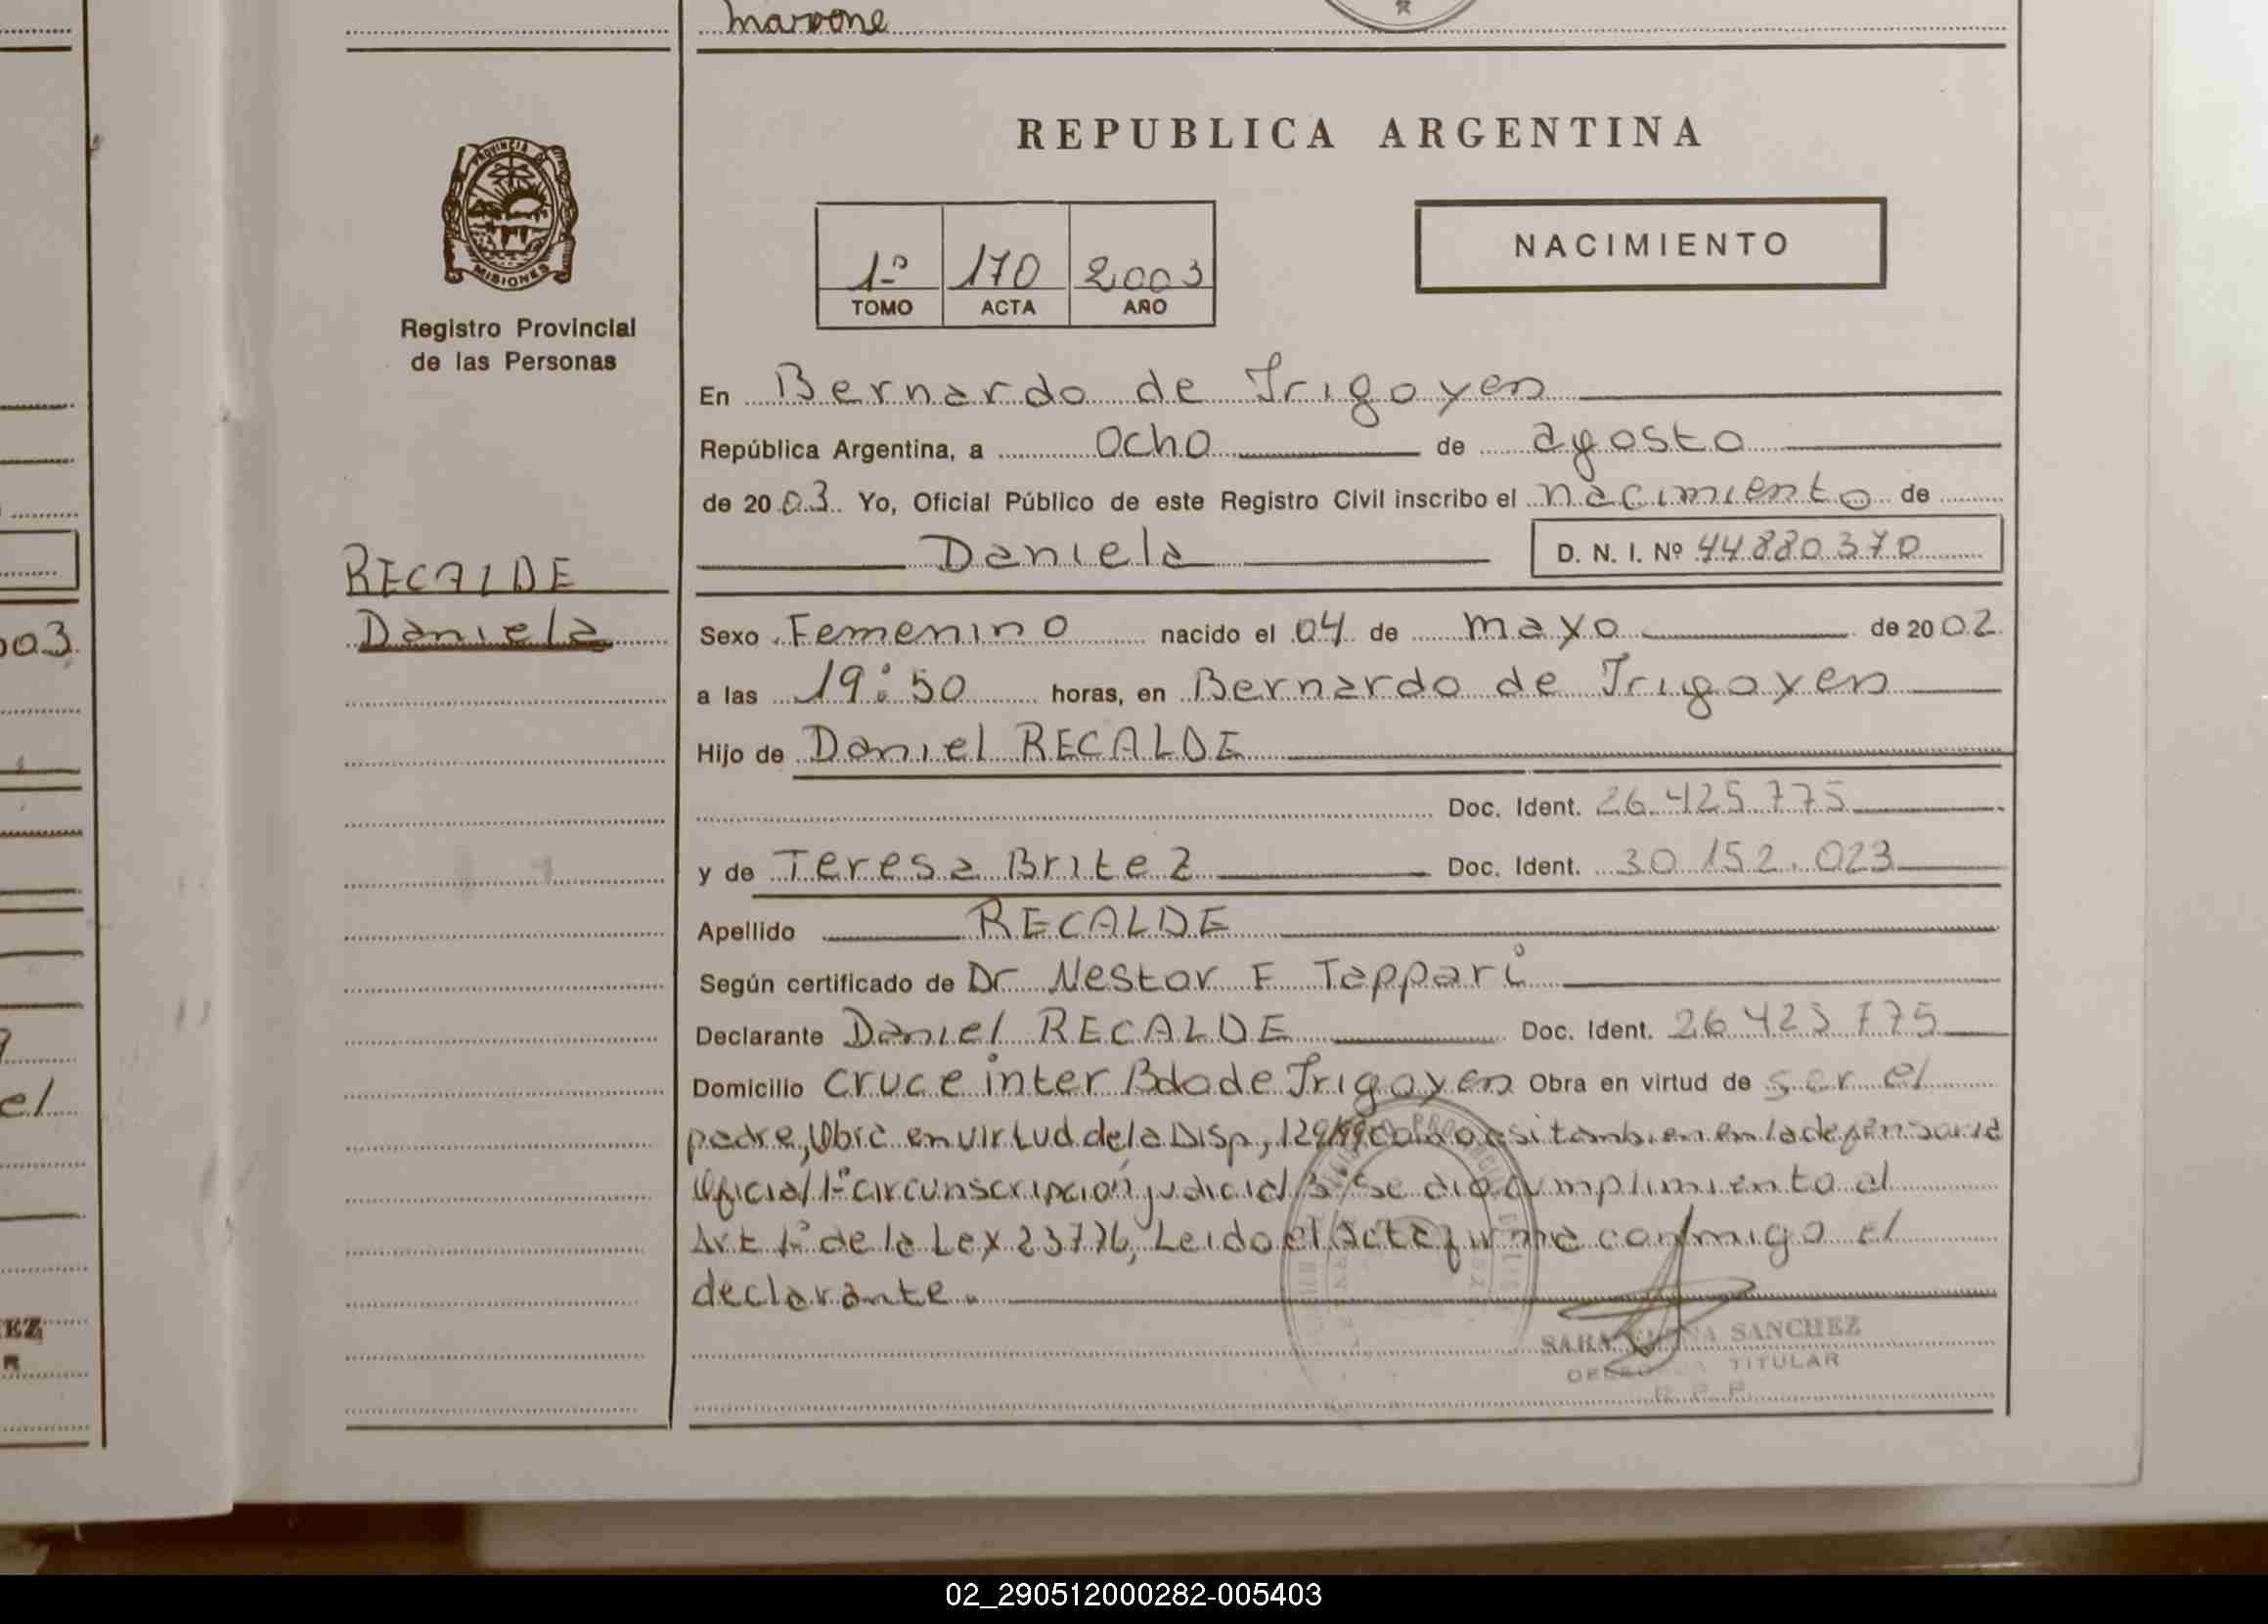 marrone
REPUBLICA ARGENTINA
PROVINCIA DE
MISIONES
Registro Provincial
de las Personas
1º 170 2003
TOMO ACTA AÑO
NACIMIENTO
En Bernardo de Irigoyen
República Argentina, a ocho de agosto
de 2003. Yo, Oficial Público de este Registro Civil inscribo el nacimiento de
Daniela D. N. I. Nº 44880370
RECALDE
Daniela
003
Sexo Femenino nacido el 04 de mayo de 2002
a las 19:50 horas, en Bernardo de Irigoyen
Hijo de Daniel RECALDE
Doc. Ident. 26.425.775
y de Teresa Britez Doc. Ident. 30.152.023
Apellido RECALDE
Según certificado de Dr Nestor F Tappari
Declarante Daniel RECALDE Doc. Ident. 26 425 775
Domicilio cruce inter Bdo de Irigoyen Obra en virtud de ser el
el
padre, Obra en virtud de la Disp, 129/99 como asi tambien en la defensoria
Oficial 1º circunscripción judicial se dio cumplimiento al
Art 1º de la Ley 23776, Leido el Acta firma conmigo el
declarante.
EZ
R
SARA ELENA SANCHEZ
TITULAR
R. P. P.
02_290512000282-005403